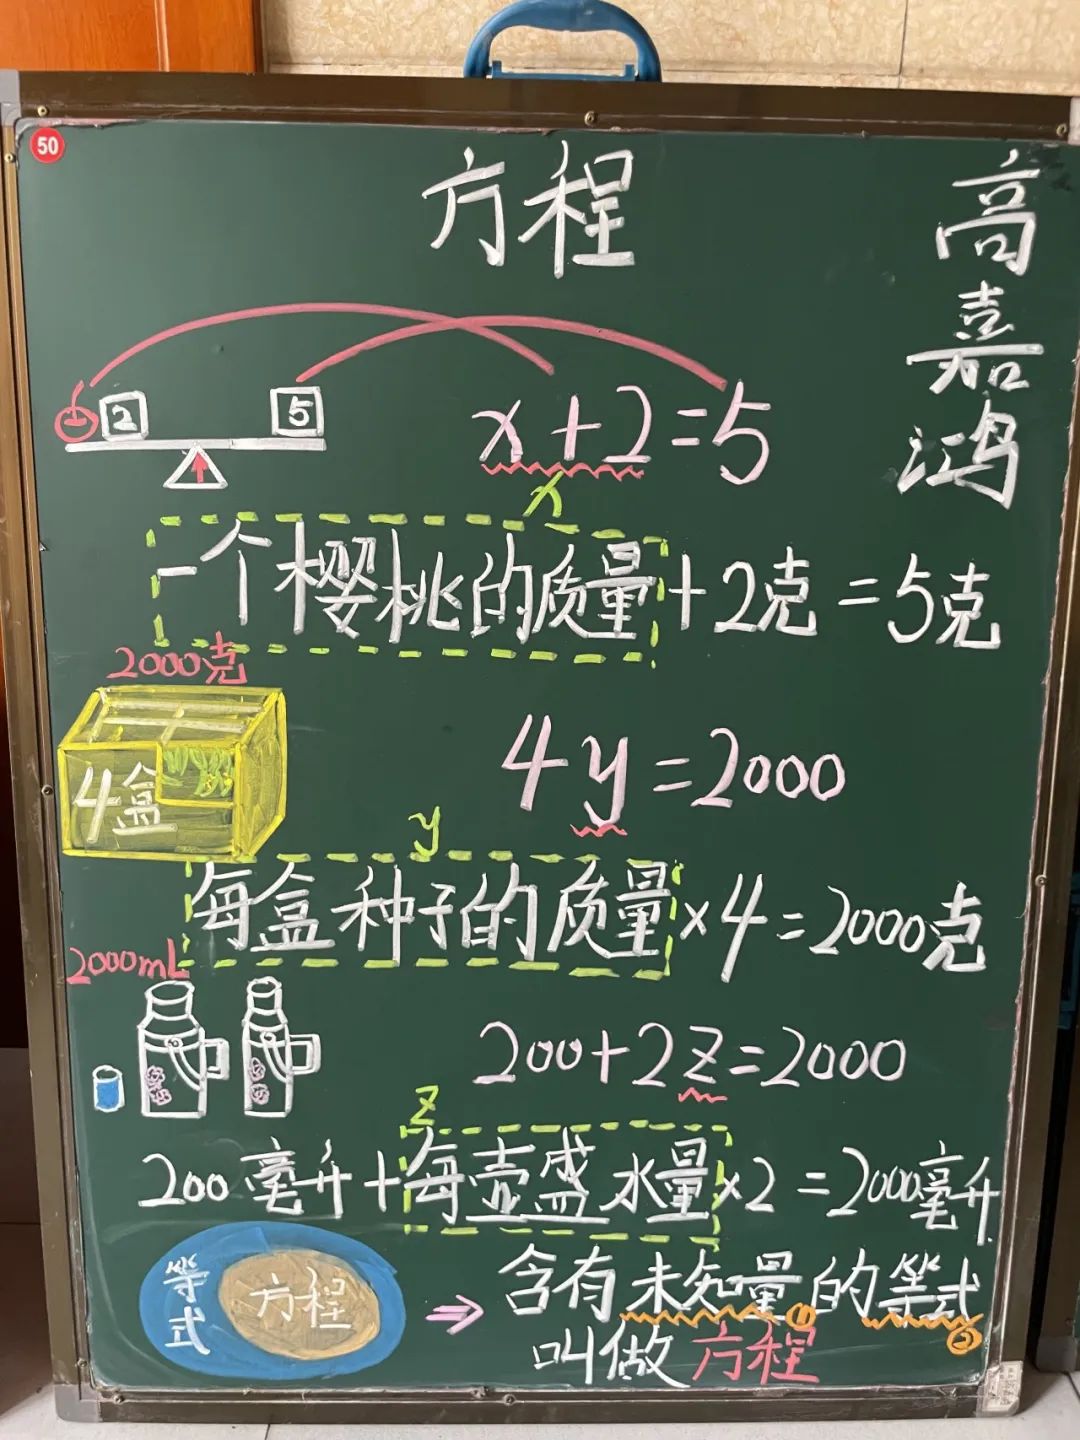 50
方程
高嘉鸿
2 5
x+2=5
x
一个樱桃的质量+2克=5克
2000克
4盒
4y=2000
y
每盒种子的质量×4=2000克
2000mL
200+2z=2000
z
200毫升+每壶盛水量×2=2000毫升
等式 方程
含有未知量①的等式②
叫做方程